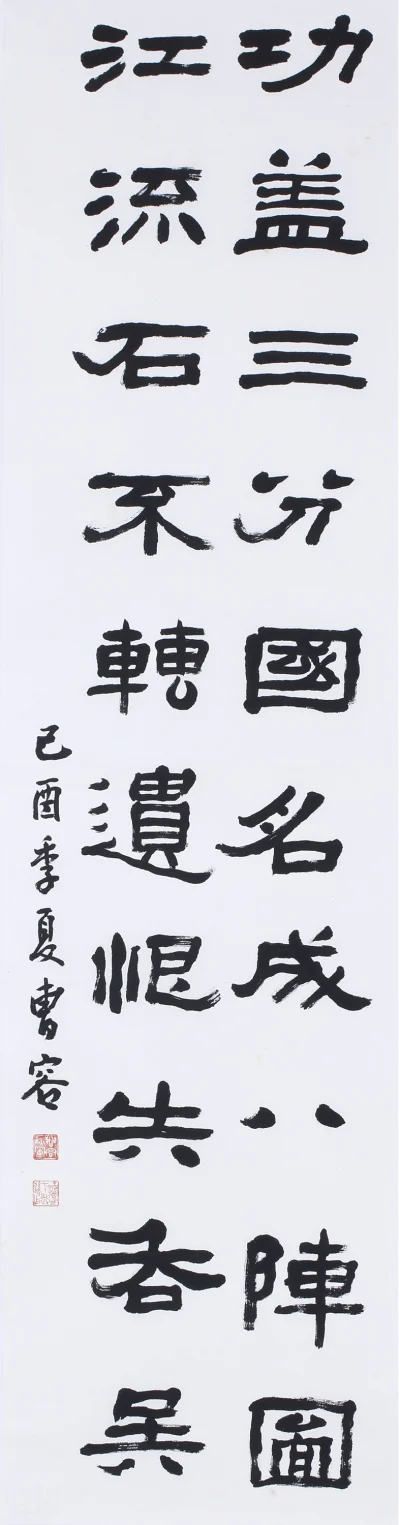 功盖三分國名成八陣圖
江流石不轉遺恨失吞吳
己酉季夏曹容